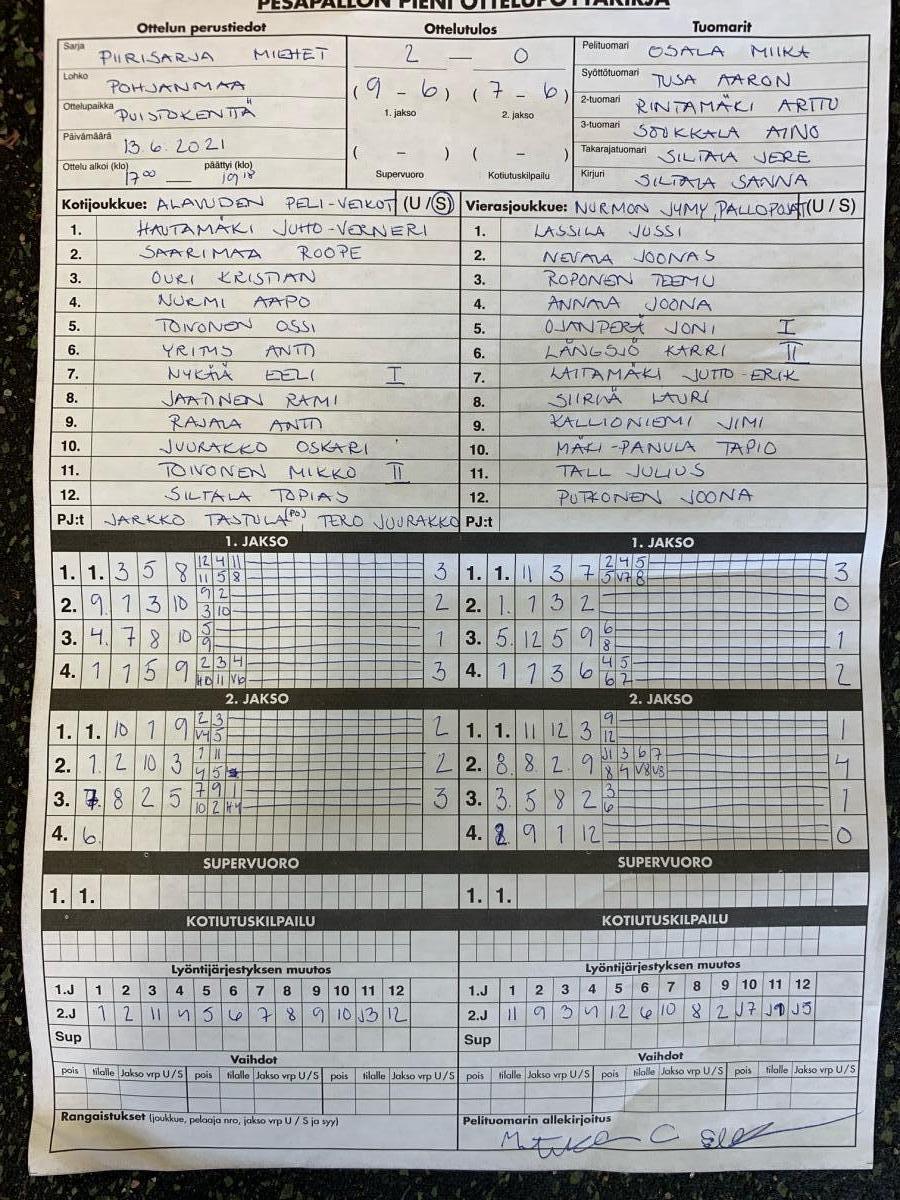 PESÄPALLON PIENI OTTELUPÖYTÄKIRJA
Ottelun perustiedot
Ottelutulos
Tuomarit
Sarja PIIRISARJA MIEHET
Lohko POHJANMAA
Ottelupaikka PUISTOKENTTÄ
Päivämäärä 13.6.2021
Ottelu alkoi (klo) päättyi (klo)
17 00 — 19 18
2 — 0
( 9 - 6 ) ( 7 - 6 )
1. jakso 2. jakso
( - ) ( - )
Supervuoro Kotiutuskilpailu
Pelituomari OSALA MIIKA
Syöttötuomari TUSA AARON
2-tuomari RINTAMÄKI ARTTU
3-tuomari SOUKKALA AINO
Takarajatuomari SILTALA JERE
Kirjuri SILTALA SANNA
Kotijoukkue: ALAVUDEN PELI-VEIKOT (U / S)
1. HAUTAMÄKI JUHO-VERNERI
2. SAARIMAA ROOPE
3. OURI KRISTIAN
4. NURMI AAPO
5. TOIVONEN OSSI
6. YRITYS ANTTI
7. NYKÄÄ EELI I
8. JAATINEN RAMI
9. RAJALA ANTTI
10. JUURAKKO OSKARI
11. TOIVONEN MIKKO II
12. SILTALA TOPIAS
PJ:t JARKKO TASTULA (PO), TERO JUURAKKO
Vierasjoukkue: NURMON JYMY, PALLOPOJAT (U / S)
1. LASSILA JUSSI
2. NEVALA JOONAS
3. ROPONEN TEEMU
4. ANNALA JOONA
5. OJANPERÄ JONI I
6. LÄNGSJÖ KARRI II
7. LAITAMÄKI JUTTO-ERIK
8. SIIRILÄ LAURI
9. KALLIONIEMI JIMI
10. MÄKI-PANULA TAPIO
11. TALL JULIUS
12. PUTKONEN JOONA
PJ:t
1. JAKSO
1. 1. 3 5 8 12 4 11 3
11 5 8
2. 9. 1 3 10 9 2 2
3 10
3. 4. 7 8 10 5 1
9
4. 1 1 5 9 2 3 4 3
H0 11 V6
1. JAKSO
1. 1. 11 3 7 2 4 5 3
5 V7 8
2. 1. 7 3 2 0
3. 5. 12 5 9 6 1
8
4. 1 7 3 6 4 5 2
6 7
2. JAKSO
1. 1. 10 7 9 2 3 2
V4 5
2. 1. 2 10 3 1 11 2
4 5
3. 7. 8 2 5 7 9 1 3
10 2 H4
4. 6.
2. JAKSO
1. 1. 11 12 3 9 1
12
2. 8. 8 2 9 J1 3 6 7 4
8 4 V8 V3
3. 3. 5 8 2 3 1
6
4. 2. 9 1 12 0
SUPERVUORO
1. 1.
SUPERVUORO
1. 1.
KOTIUTUSKILPAILU
KOTIUTUSKILPAILU
Lyöntijärjestyksen muutos
1.J 1 2 3 4 5 6 7 8 9 10 11 12
2.J 1 2 11 4 5 6 7 8 9 10 J3 12
Sup
Lyöntijärjestyksen muutos
1.J 1 2 3 4 5 6 7 8 9 10 11 12
2.J 11 9 3 4 12 6 10 8 2 J7 J1 J5
Sup
Vaihdot
pois tilalle Jakso vrp U / S pois tilalle Jakso vrp U / S pois tilalle Jakso vrp U / S
Vaihdot
pois tilalle Jakso vrp U / S pois tilalle Jakso vrp U / S pois tilalle Jakso vrp U / S
Rangaistukset (joukkue, pelaaja nro, jakso vrp U / S ja syy)
Pelituomarin allekirjoitus